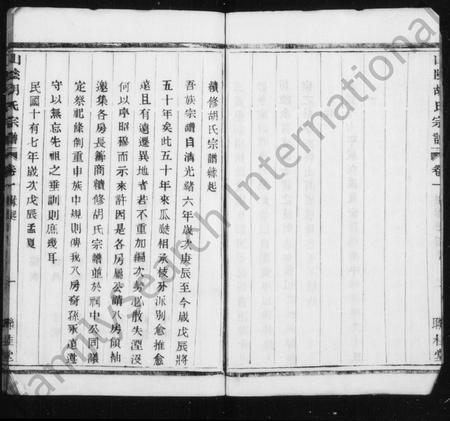 山陰胡氏宗譜 卷一
聯桂堂
續修胡氏宗譜緣起
吾族宗譜自清光緒六年歲次庚辰至今歲戊辰將
五十年矣此五十年來瓜瓞相承枝分派別愈推愈
遠且有遠遷異地者若不重加編次勢必散失湮沒
何以序昭穆而示來許因是各房屬公請八房領袖
邀集各房長籌商續修胡氏宗譜並於祠中公同議
定祭祀條例重申族中規則俾我八房裔孫永遠遵
守以無忘先祖之垂訓則庶幾耳
民國十有七年歲次戊辰孟夏
山陰胡氏宗譜 卷一 緣起
一
聯桂堂
FamilySearch International